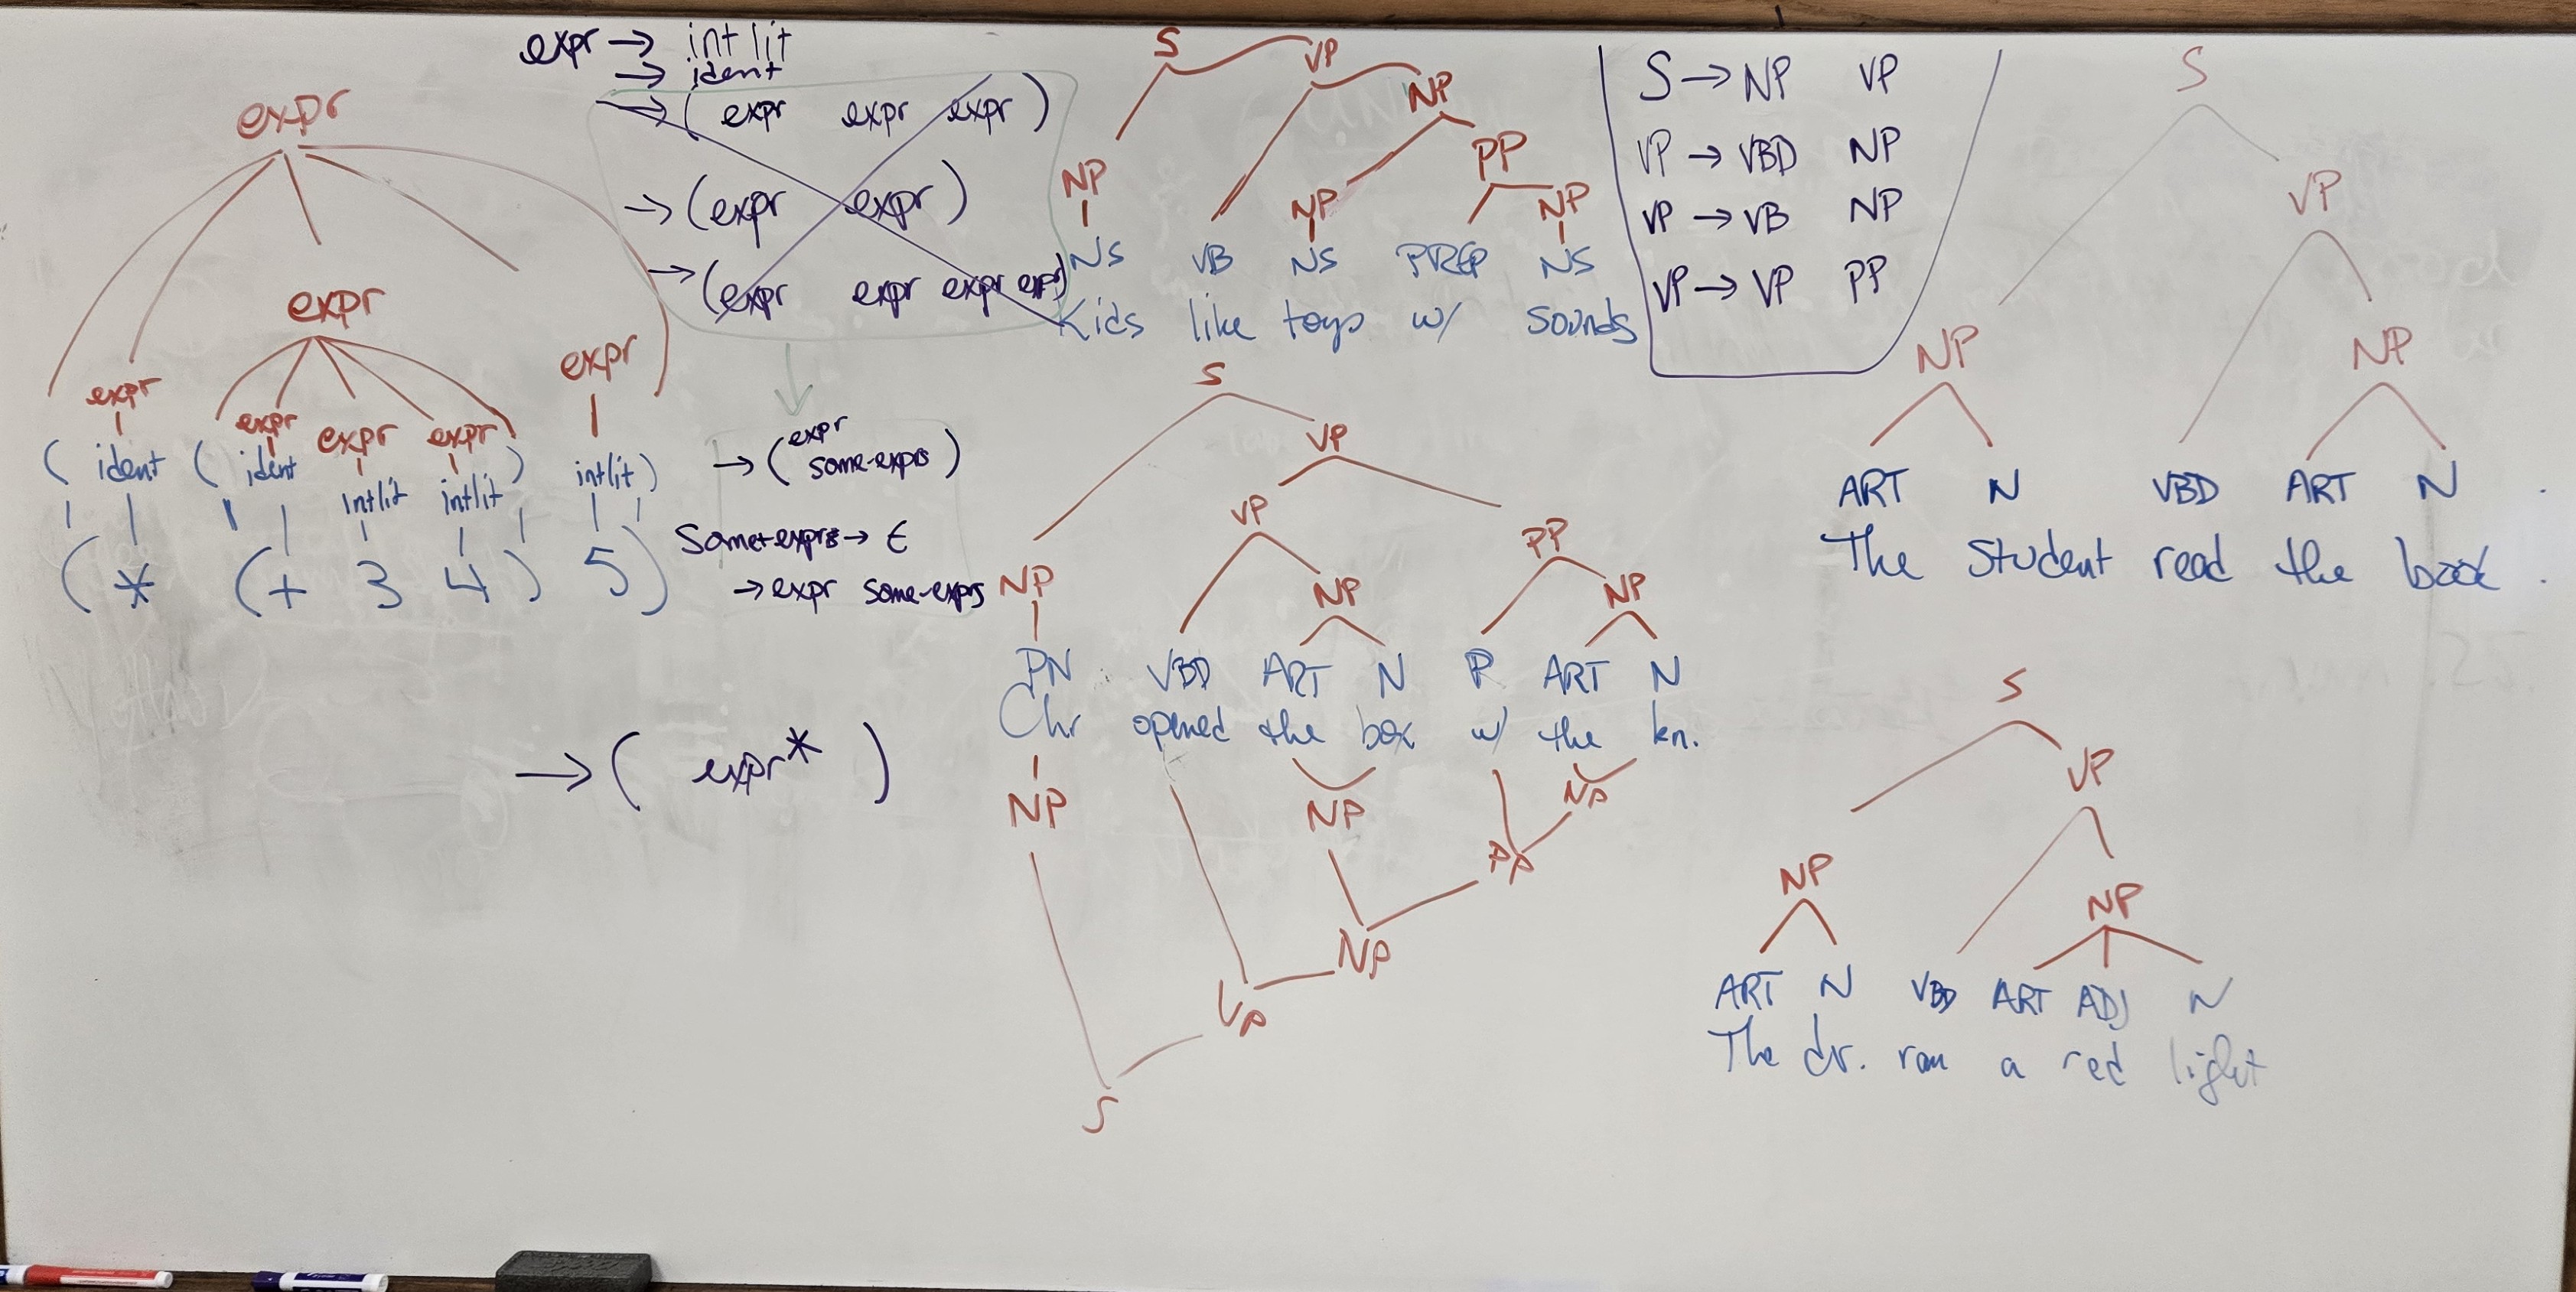 expr → intlit
→ ident
→ ( expr expr expr )
→ ( expr expr )
→ ( expr expr expr expr )
→ ( expr some-exprs )
some-exprs → ε
→ expr some-exprs
→ ( expr* )
expr
expr
expr expr
expr expr expr
( ident ( ident intlit intlit ) intlit )
( * ( + 3 4 ) 5 )
S
VP
NP
PP
NP NP NP
NS VB NS PREP NS
Kids like toys w/ sounds
S → NP VP
VP → VBD NP
VP → VB NP
VP → VP PP
S
VP
NP NP
ART N VBD ART N .
The student read the book .
S
VP
VP PP
NP NP NP
PN VBD ART N P ART N
Chr opened the box w/ the kn.
NP NP NP
PP
NP
VP
S
S
VP
NP NP
ART N VBD ART ADJ N
The dr. ran a red light